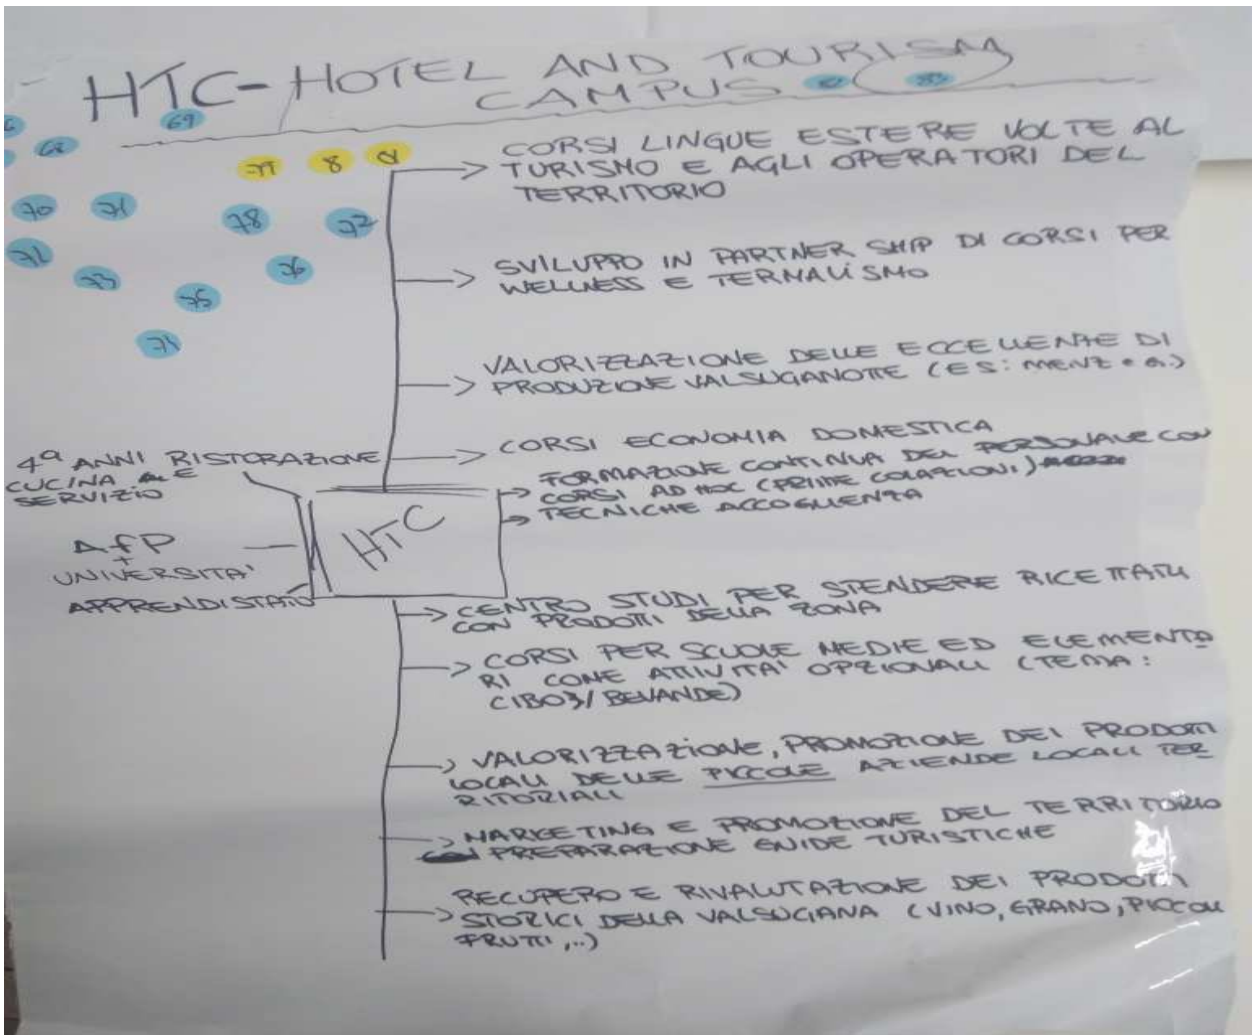 HTC-HOTEL AND TOURISM
CAMPUS
69
68
77
8
70
71
78
72
73
76
75
CORSI LINGUE ESTERE VOLTE AL
TURISMO E AGLI OPERATORI DEL
TERRITORIO
SVILUPPO IN PARTNER SHIP DI CORSI PER
WELLNESS E TERMALISMO
VALORIZZAZIONE DELLE ECCELLENZE DI
PRODUZIONE VALSUGANOTTE (ES: MENZ e G.)
CORSI ECONOMIA DOMESTICA
FORMAZIONE CONTINUA DEL PERSONALE CON
CORSI AD HOC (PRIME COLAZIONI)
TECNICHE ACCOGLIENZA
4ª ANNI RISTORAZIONE
CUCINA E
SERVIZIO
AFP
+
UNIVERSITA'
APPRENDISTATO
HTC
CENTRO STUDI PER STENDERE RICETTARI
CON PRODOTTI DELLA ZONA
CORSI PER SCUOLE MEDIE ED ELEMENTA
RI COME ATTIVITA' OPZIONALI (TEMA:
CIBO/BEVANDE)
VALORIZZAZIONE, PROMOZIONE DEI PRODOTTI
LOCALI DELLE PICCOLE AZIENDE LOCALI TER
RITORIALI
MARKETING E PROMOZIONE DEL TERRITORIO
PREPARAZIONE GUIDE TURISTICHE
RECUPERO E RIVALUTAZIONE DEI PRODOTTI
STORICI DELLA VALSUGANA (VINO, GRANO, PICCOLI
FRUTTI,..)